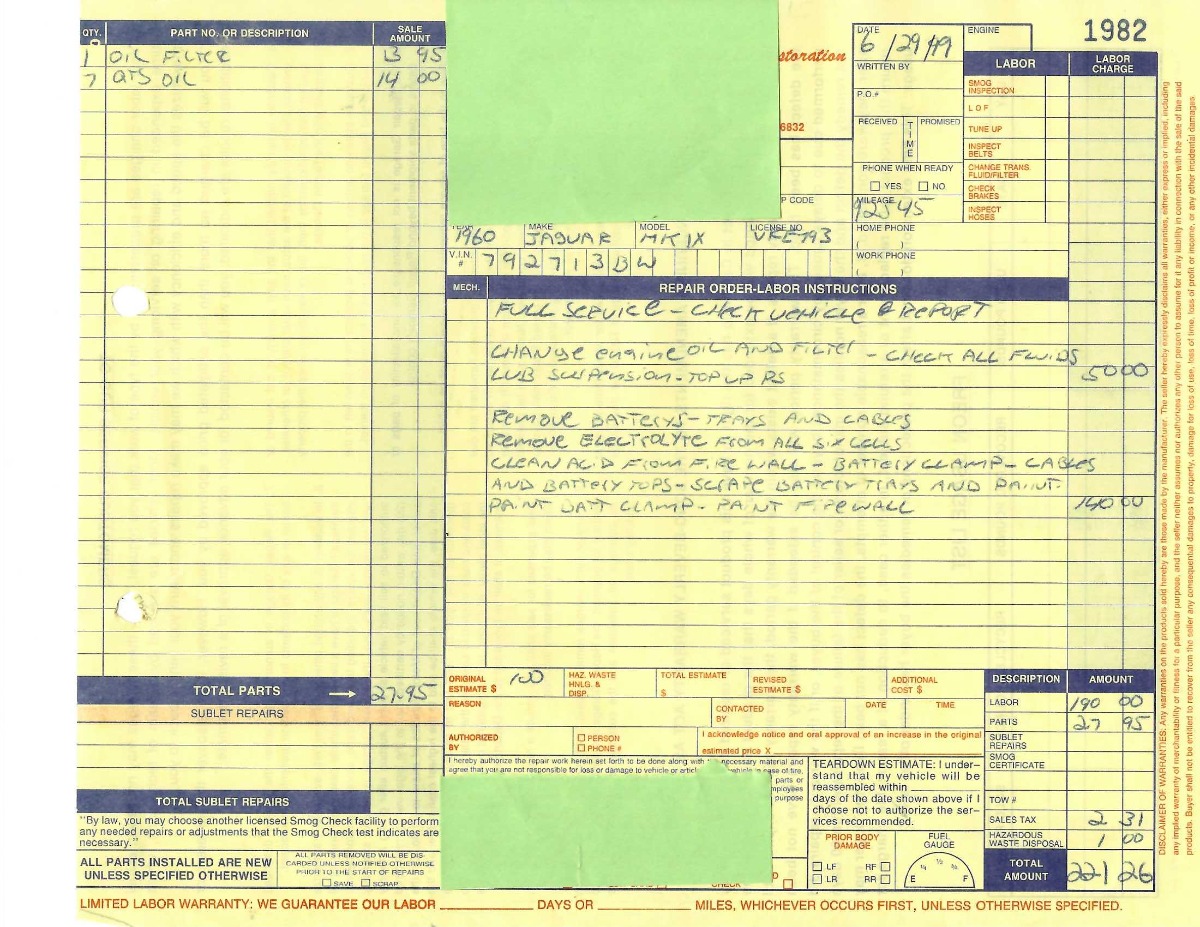 QTY. PART NO. OR DESCRIPTION SALE AMOUNT
1 OIL FILTER 13 95
7 QTS OIL 14 00
TOTAL PARTS → 27.95
SUBLET REPAIRS
TOTAL SUBLET REPAIRS
"By law, you may choose another licensed Smog Check facility to perform
any needed repairs or adjustments that the Smog Check test indicates are
necessary."
ALL PARTS INSTALLED ARE NEW
UNLESS SPECIFIED OTHERWISE
ALL PARTS REMOVED WILL BE DIS-
CARDED UNLESS NOTIFIED OTHERWISE
PRIOR TO THE START OF REPAIRS
SAVE SCRAP
storation
6832
P CODE
DATE 6/29/99
WRITTEN BY
P.O.#
RECEIVED TIME PROMISED
PHONE WHEN READY
YES NO
MILEAGE
HOME PHONE
( )
WORK PHONE
( )
ENGINE
1982
LABOR LABOR CHARGE
SMOG INSPECTION
L O F
TUNE UP
INSPECT BELTS
CHANGE TRANS. FLUID/FILTER
CHECK BRAKES
INSPECT HOSES
YEAR MAKE MODEL LICENSE NO.
1960 JAGUAR MK IX
V.I.N. # 792713BW
MECH. REPAIR ORDER-LABOR INSTRUCTIONS
FULL SERVICE - CHECK VEHICLE & REPORT
CHANGE engine OIL AND FILTER - CHECK ALL FLUIDS
LUB SUSPENSION - TOP UP PS 50 00
REMOVE BATTERYS - TRAYS AND CABLES
REMOVE ELECTROLYTE FROM ALL SIX CELLS
CLEAN ACID FROM FIRE WALL - BATTERY CLAMP - CABLES
AND BATTERY TOPS - SCRAPE BATTERY TRAYS AND PAINT.
PAINT BATT CLAMP - PAINT FIREWALL 140 00
ORIGINAL ESTIMATE $ 100
HAZ. WASTE HNLG. & DISP.
TOTAL ESTIMATE $
REVISED ESTIMATE $
ADDITIONAL COST $
REASON
CONTACTED BY
DATE TIME
AUTHORIZED BY
PERSON
PHONE #
I acknowledge notice and oral approval of an increase in the original
estimated price X
I hereby authorize the repair work herein set forth to be done along with the necessary material and
agree that you are not responsible for loss or damage to vehicle or articl vehicle in case of fire,
parts or
mployees
purpose
TEARDOWN ESTIMATE: I under-
stand that my vehicle will be
reassembled within
days of the date shown above if I
choose not to authorize the ser-
vices recommended.
PRIOR BODY DAMAGE
LF RF
LR RR
FUEL GAUGE
E 1/4 1/2 3/4 F
CHECK
DESCRIPTION AMOUNT
LABOR 190 00
PARTS 27 95
SUBLET REPAIRS
SMOG CERTIFICATE
TOW #
SALES TAX 2 31
HAZARDOUS WASTE DISPOSAL 1 00
TOTAL AMOUNT 221 26
LIMITED LABOR WARRANTY: WE GUARANTEE OUR LABOR DAYS OR MILES, WHICHEVER OCCURS FIRST, UNLESS OTHERWISE SPECIFIED.
DISCLAIMER OF WARRANTIES: Any warranties on the products sold hereby are those made by the manufacturer. The seller hereby expressly disclaims all warranties, either express or implied, including
any implied warranty of merchantability or fitness for a particular purpose, and the seller neither assumes nor authorizes any other person to assume for it any liability in connection with the sale of the said
products. Buyer shall not be entitled to recover from the seller any consequential damages to property, damage for loss of use, loss of time, loss of profit or income, or any other incidental damages.